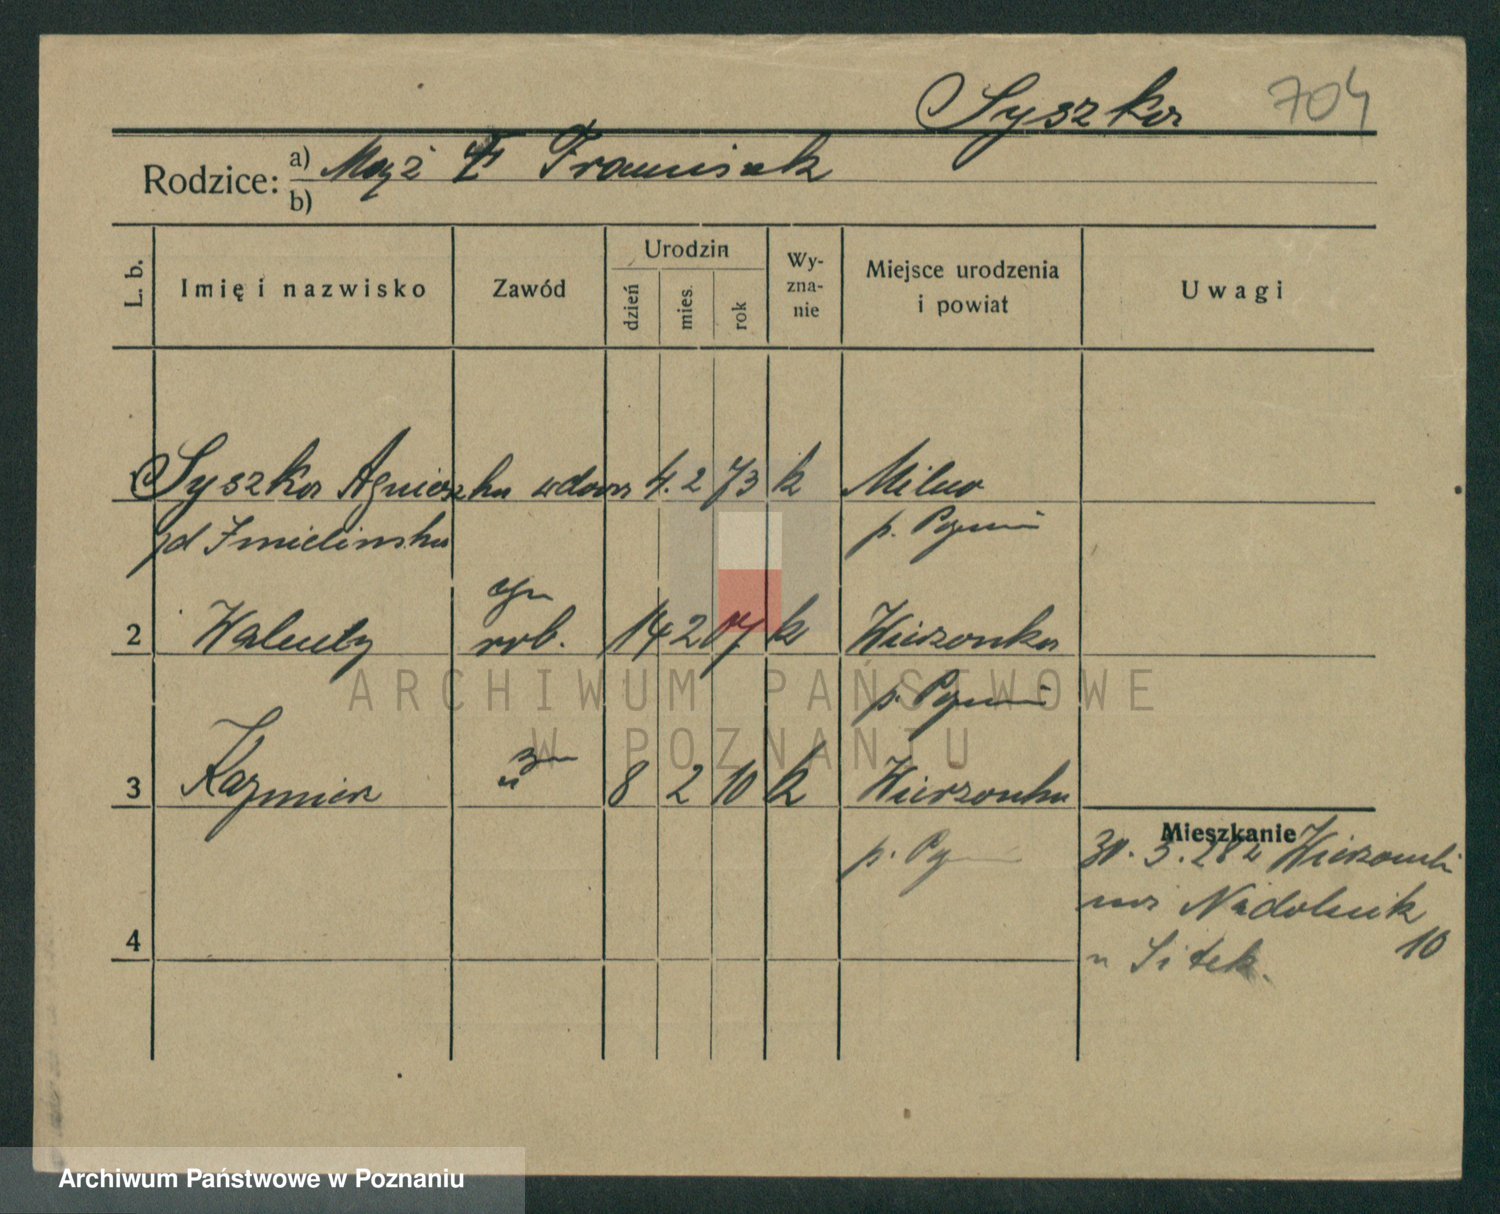 Syszka 704
Rodzice: a) Mąż Franciszek
b)
L. b. Imię i nazwisko Zawód Urodzin dzień mies. rok Wy-zna-nie Miejsce urodzenia i powiat Uwagi
1 Syszka Agnieszka wdowa 4. 2 73 k Milno
p. Poznań
2 Walenty rob. 14 2 07 k Wierzonka
p. Poznań
3 Kazmierz syn " 8 2 10 k Wierzonka
p. Poznań
Mieszkanie
Nadolnik
10
u Sitek.
4
ARCHIWUM PAŃSTWOWE
W POZNANIU
Archiwum Państwowe w Poznaniu